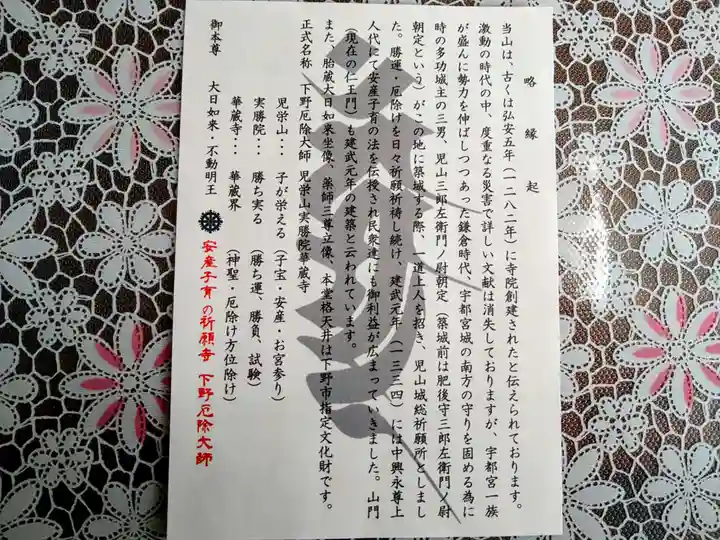 略縁起
当山は、古くは弘安五年（一二八二年）に寺院創建されたと伝えられております。
激動の時代の中、度重なる災害で詳しい文献は消失しておりますが、宇都宮一族
が盛んに勢力を伸ばしつつあった鎌倉時代、宇都宮城の南方の守りを固める為に
時の多功城主の三男、児山三郎左衛門ノ尉朝定（築城前は肥後守三郎左衛門ノ尉
朝定という）がこの地に築城する際、一道上人を招き、児山城総祈願所としまし
た。勝運・厄除けを日々祈願祈祷し続け、建武元年（一三三四）には中興永尊上
人代にて安産子育の法を伝授され民衆達にも御利益が広まっていきました。山門
（現在の仁王門）も建武元年の建築と云われています。
また、胎蔵大日如来坐像、薬師三尊立像、本堂格天井は下野市指定文化財です。
正式名称　下野厄除大師　児栄山実勝院華蔵寺
児栄山・・・　子が栄える　（子宝・安産・お宮参り）
実勝院・・・　勝ち実る　（勝ち運、勝負、試験）
華蔵寺・・・　華蔵界　（神聖・厄除け方位除け）
御本尊　大日如来・不動明王
安産子育の祈願寺　下野厄除大師